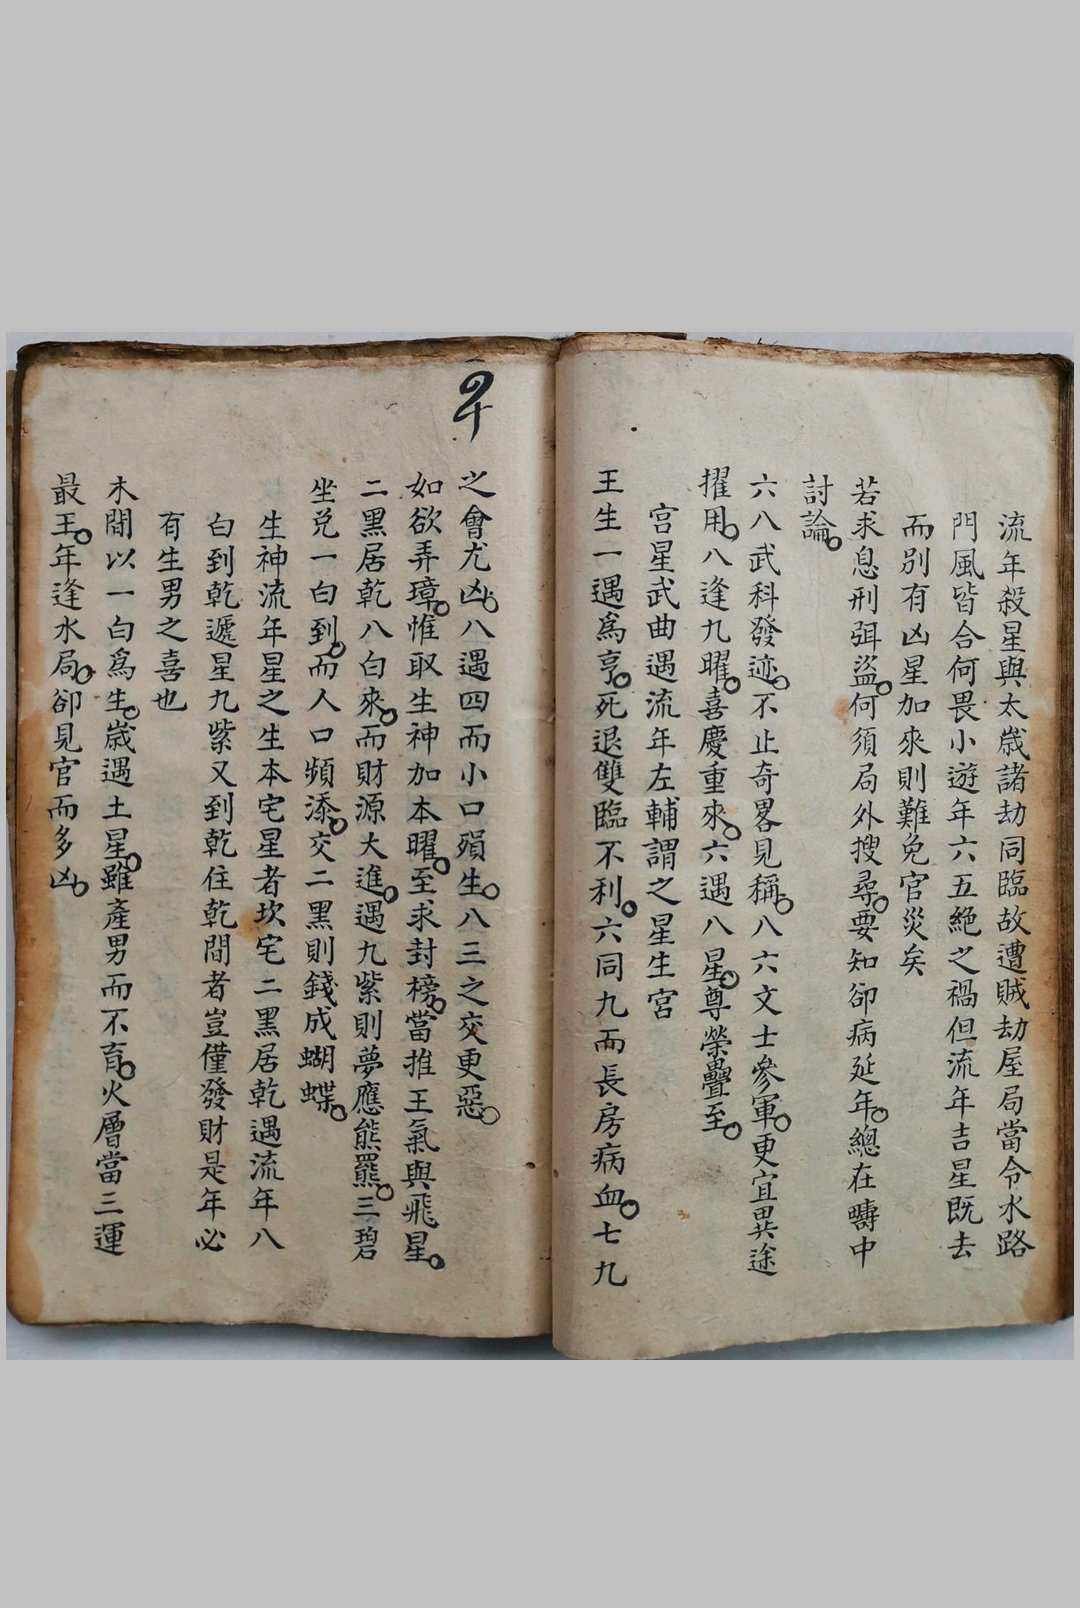 流年殺星與太歲諸劫同臨故遭賊劫屋局當令水路
門風皆合何畏小遊年六五絶之禍但流年吉星既去
而别有凶星加來則難免官災矣
若求息刑弭盜何須局外搜尋要知卻病延年總在疇中
討論
六八武科發迹不止奇畧見稱八六文士參軍更宜異途
擢用八逢九曜喜慶重來六遇八星尊榮疊至
宮星武曲遇流年左輔謂之星生宮
王生一遇爲亨死退雙臨不利六同九而長房病血七九
之會尤凶八遇四而小口殞生八三之交更惡
如欲弄璋惟取生神加本曜至求封榜當推王氣與飛星
二黑居乾八白來而財源大進遇九紫則夢應熊羆三碧
坐兌一白到而人口頻添交二黑則錢成蝴蝶
生神流年星之生本宅星者坎宅二黑居乾遇流年八
白到乾遞星九紫又到乾住乾間者豈僅發財是年必
有生男之喜也
木間以一白爲生歲遇土星雖產男而不育火層當三運
最王年逢水局卻見官而多凶